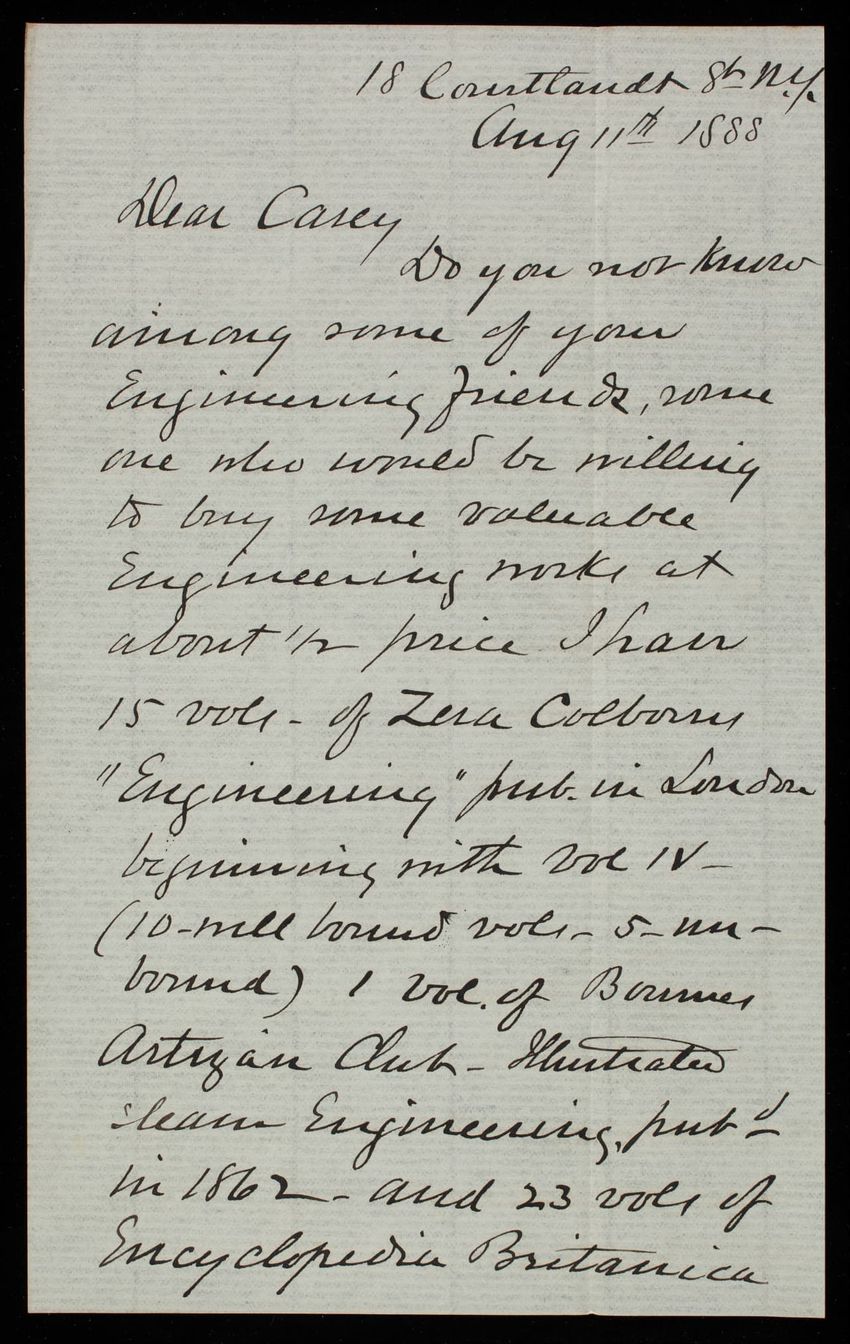 18 Courtlandt St N.Y.
Aug 11th 1888
Dear Casey
Do you not know
among some of your
Engineering friends, some
one who would be willing
to buy some valuable
Engineering works at
about 1/2 price I have
15 vols - of Zera Colburns
"Engineering" pub. in London
beginning with Vol IV -
(10 - well bound vols - 5 - un -
bound) 1 vol. of Bournes
Artizan Club - Illustrated
steam Engineering, pub'd
in 1862 - and 23 vols of
Encyclopedia Britanica